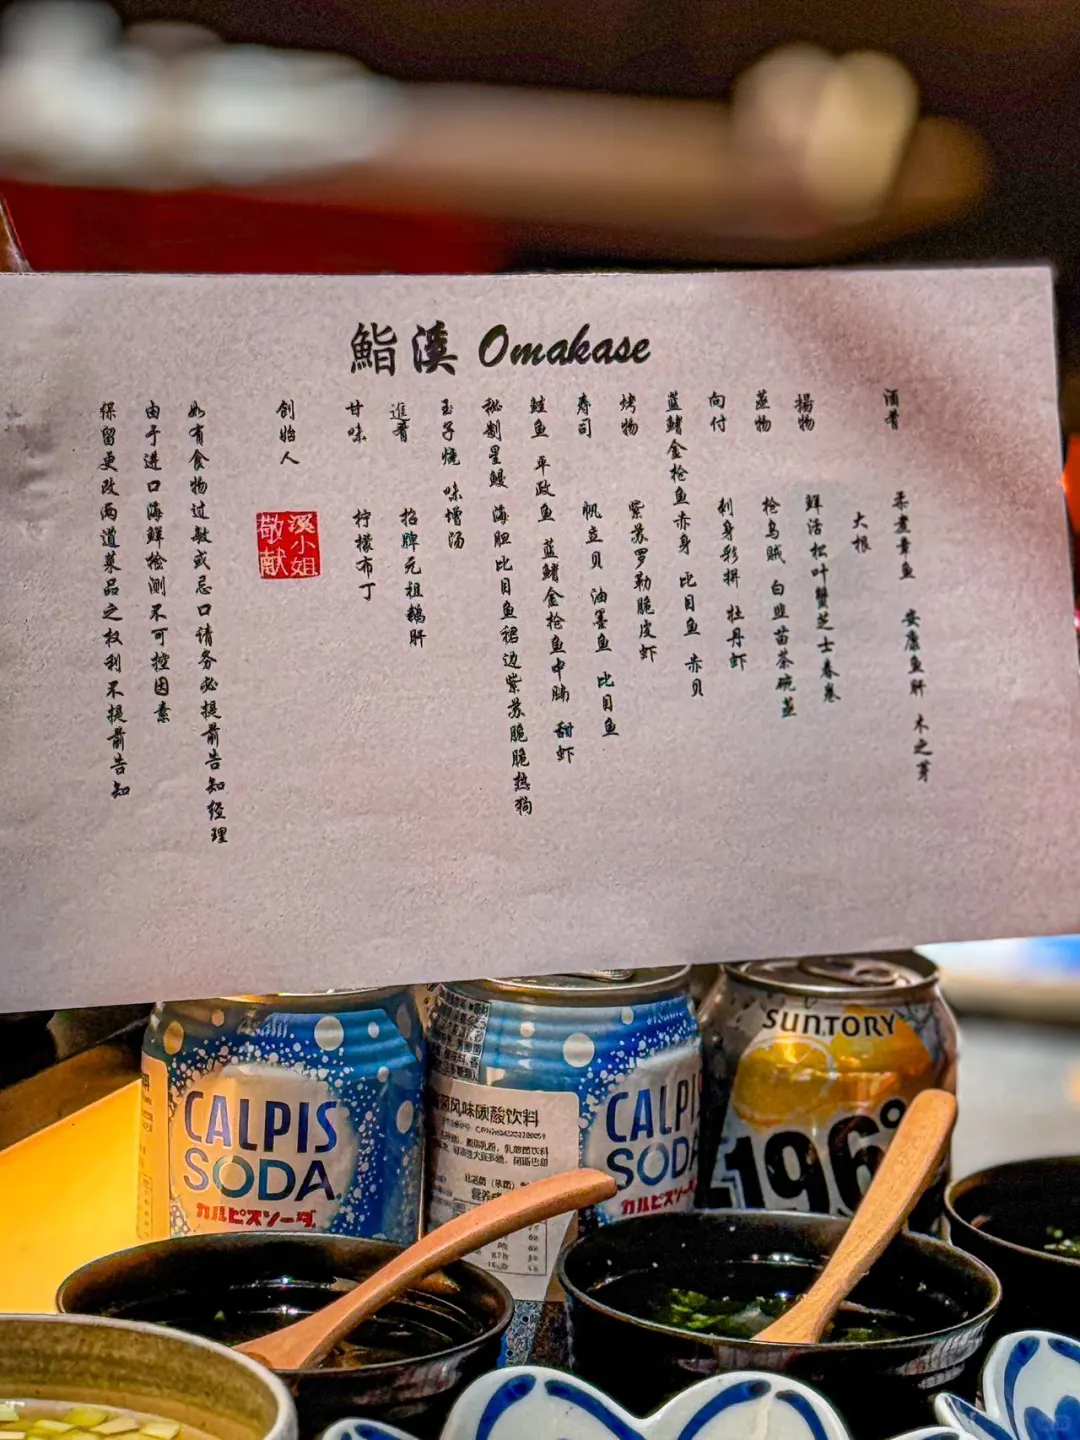 鮨溪 Omakase
酒肴 柔煮章鱼 安康鱼肝 木之芽
大根
揚物 鲜活松叶蟹芝士春卷
蒸物 枪乌贼 白韭苗茶碗蒸
向付 刺身彩拼 牡丹虾
蓝鳍金枪鱼赤身 比目鱼 赤贝
烤物 紫苏罗勒脆皮虾
寿司 帆立贝 油墨鱼 比目鱼
鲑鱼 平政鱼 蓝鳍金枪鱼中腩 甜虾
秘制星鳗 海胆比目鱼裙边紫苏脆脆热狗
玉子烧 味增汤
進肴 招牌元祖鵝肝
甘味 柠檬布丁
创始人 溪小姐敬献
如有食物过敏或忌口请务必提前告知经理
由于进口海鲜检测不可控因素
保留更改两道菜品之权利不提前告知
Asahi
CALPIS
SODA
カルピスソーダ
风味碳酸饮料
CALPI
SODA
カルピスソーダ
SUNTORY
-196°